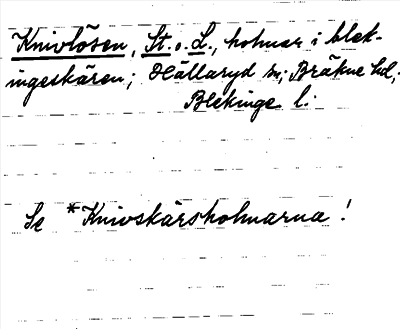 Knivlösen, St. o. L., holmar i blek-
ingeskären; Hällaryd sn; Bräkne hd,
Blekinge l.
Se *Knivskärsholmarna!